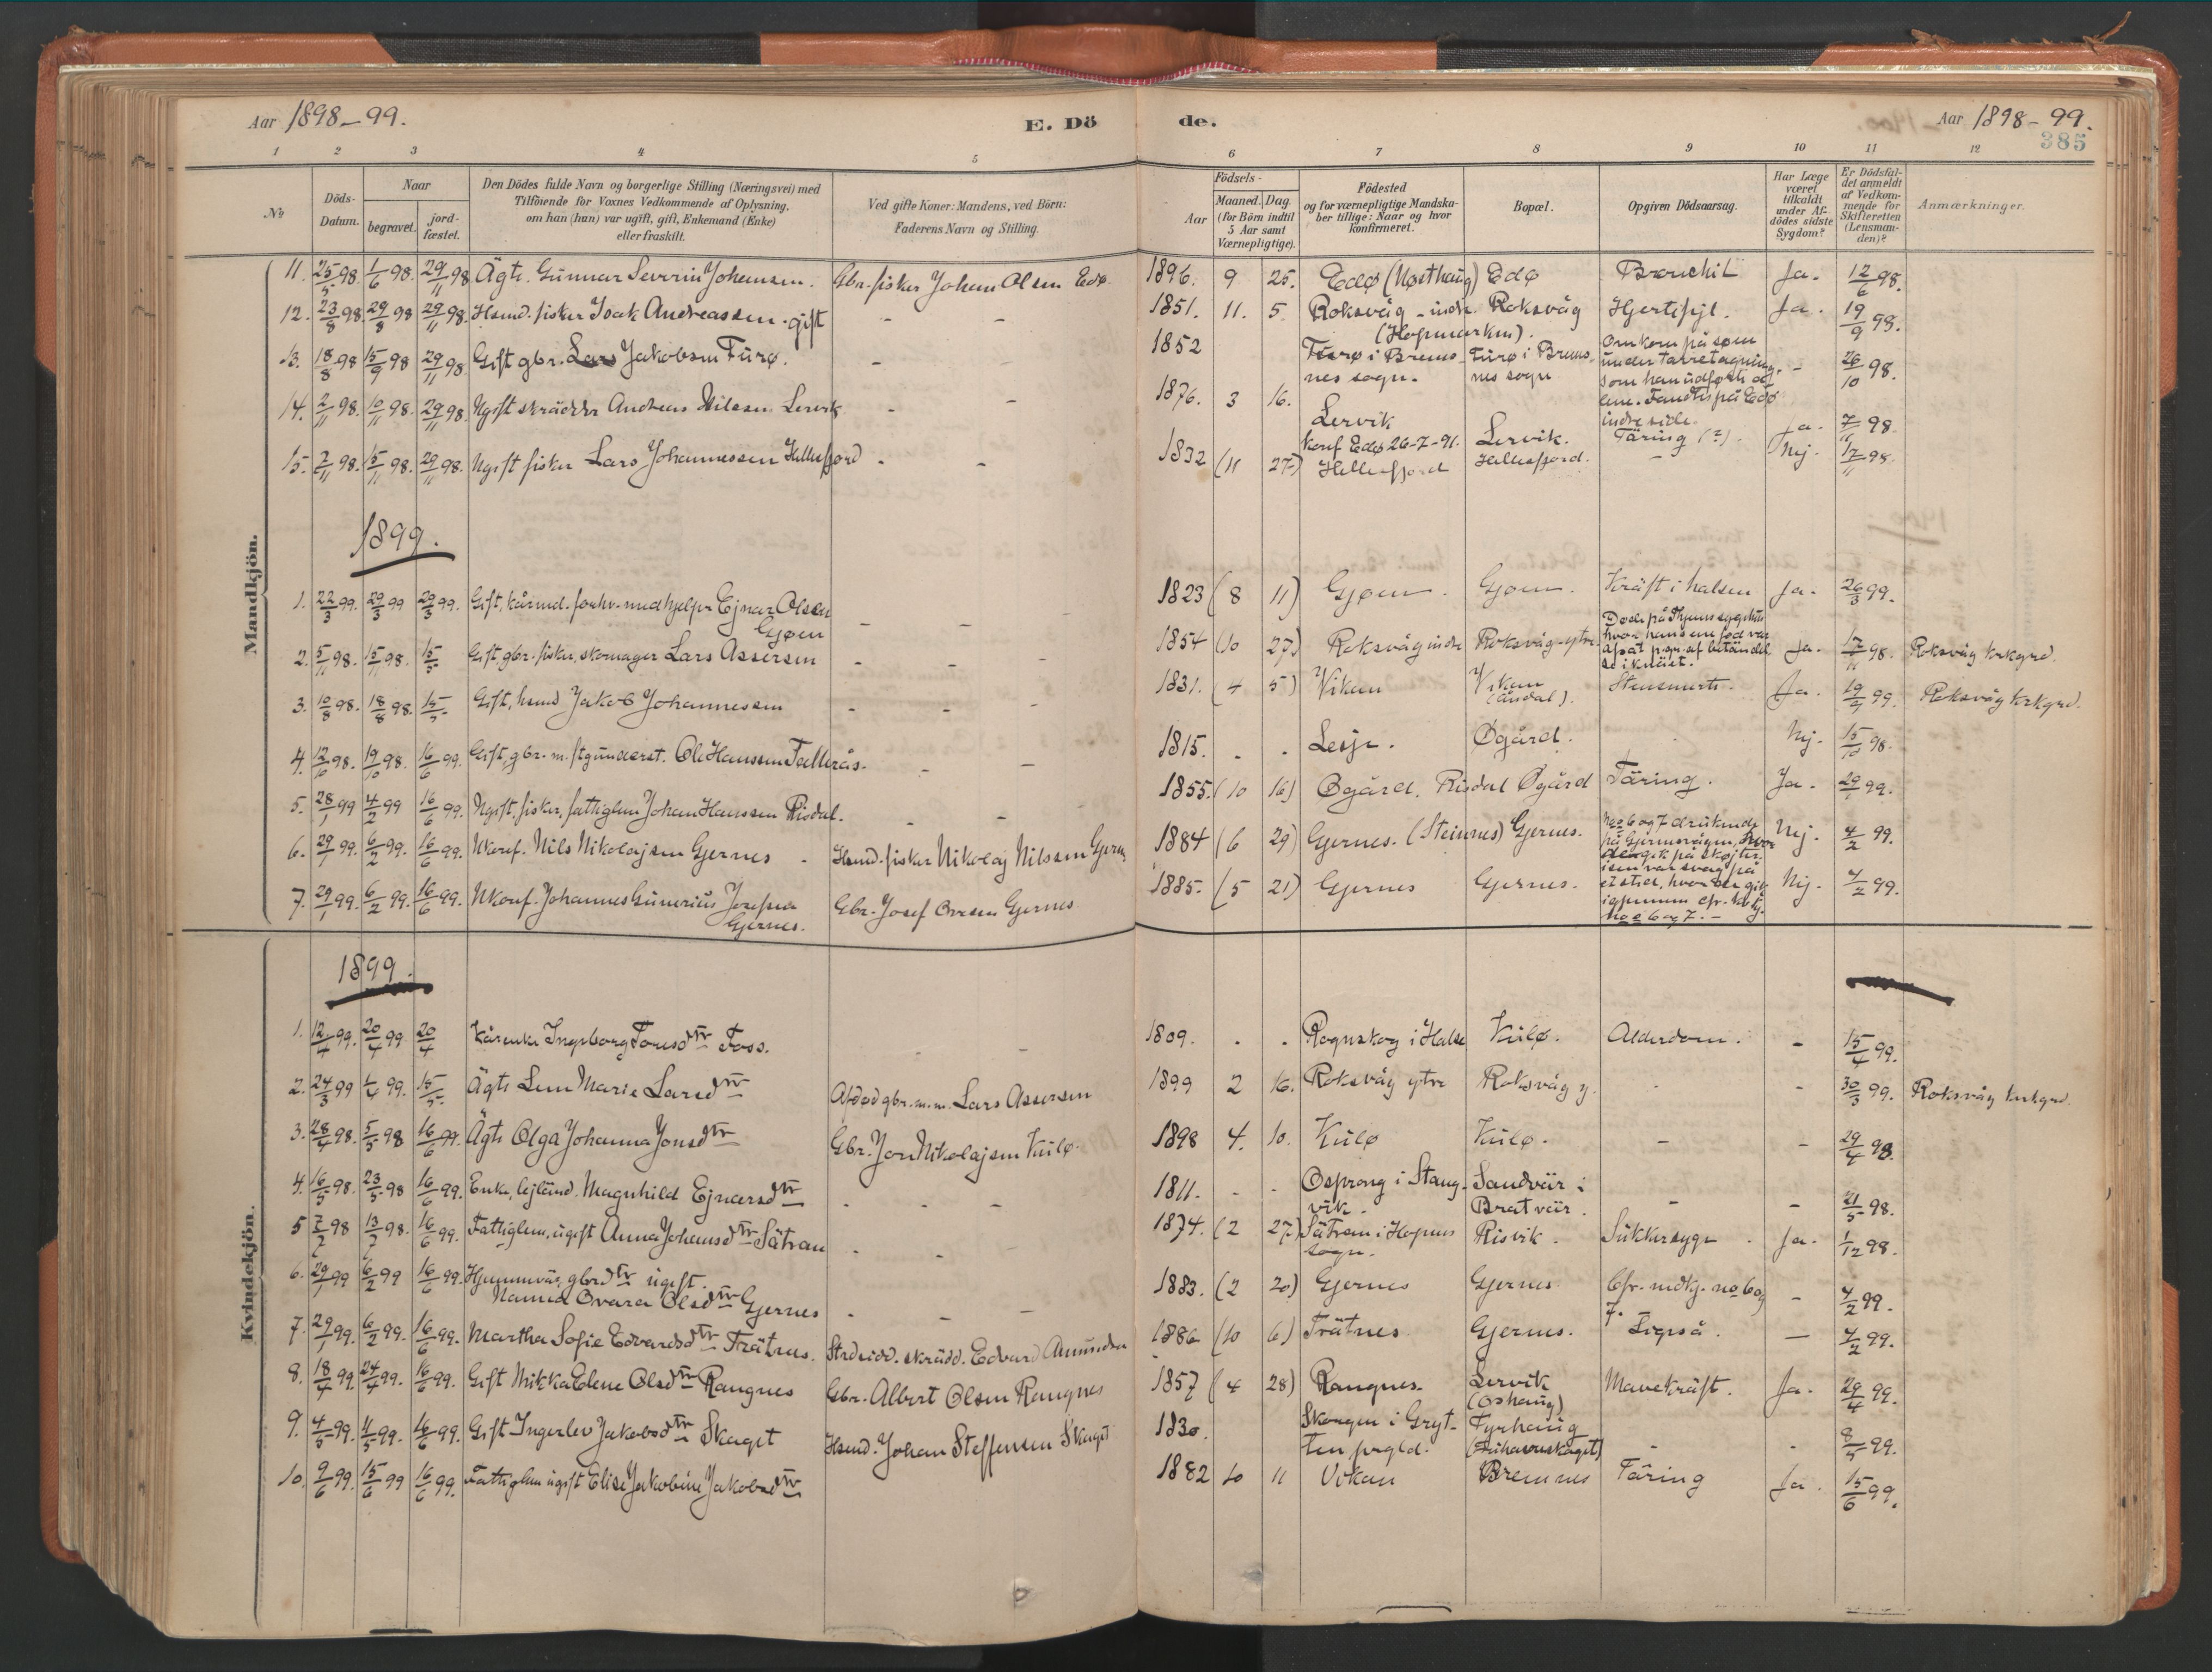 Aar 1898-99.
E. Dö
de.
Aar 1898-99.
385
1 2 3 4 5 6 7 8 9 10 11 12
№
Döds-Datum.
Naar
begravet.
jord-fæstet.
Den Dödes fulde Navn og borgerlige Stilling (Næringsvei) med
Tilföiende for Voxnes Vedkommende af Oplysning,
om han (hun) var ugift, gift, Enkemand (Enke)
eller fraskilt.
Ved gifte Koner: Mandens, ved Börn:
Faderens Navn og Stilling.
Födsels-
Aar
Maaned. Dag.
(for Börn indtil
5 Aar samt
Værnepligtige).
Födested
og for værnepligtige Mandska-
ber tillige: Naar og hvor
konfirmeret.
Bopæl.
Opgiven Dödsaarsag.
Har Læge
været
tilkaldt
under Af-
dödes sidste
Sygdom?
Er Dödsfal-
det anmeldt
af Vedkom-
mende for
Skifteretten
(Lensman-
den)?
Anmærkninger.
Mandkjön.
11. 25/5 98. 1/6 98. 29/11 98 Ägte. Gunnar Severin Johansen. Gbr. fisker Johan Olsen Edø. 1896. 9 25. Edø (Nøsthaug) Edø Bronchit Ja. 12/6 98.
12. 23/8 98. 29/8 98 29/11 98. Hsmd. fisker Isak Andreassen. gift - - 1851. 11. 5. Roksvåg - indr. (Hopmarken). Roksvåg Hjertefejl. Ja. 19/9 98.
13. 18/8 98 15/9 98 29/11 98 Gift gbr. Lars Jakobsen Furø. - - 1852 Furø i Brems-
nes sogn. Furø i Brems-
nes sogn Omkom på søen
under tarretagning,
som han udførte a-
lene. Fandtes på Edø
indre side. - 26/10 98.
14. 2/11 98. 10/11 98. 29/11 98. Ugift skrädder Andreas Nilsen Lervik - - 1876. 3 16. Lervik
konf Edø 26-7-91. Lervik. Täring (?). Ja. 7/11 98.
15. 7/11 98. 15/11 98. 29/11 98. Ugift fisker Lars Johannessen Hellesfjord - - 1832 (11 27) Hellesfjord Hellesfjord. - Nej. 17/11 98.
1899.
1. 22/3 99. 29/3 99 29/3 99. Gift, kårmd. forhv. medhjelper Ejnar Olsen
Gjøen - - 1823 (8 11) Gjøen. Gjøen. Kräft i halsen Ja. 26/3 99.
2. 5/11 98. 15/11 98. 15/5 Gift, gbr. fisker, skomager Lars Assersen - - - 1854 (10 27) Roksvåg indre Roksvåg-ytre Døde på Thjems sygehus
hvor hans ene fod var
afsat p.gr. af betändel-
se i knäet. Ja. 17/11 98. Roksvåg kirkgrd.
3. 10/8 98. 18/8 98. 15/5 Gift, hsmd Jakob Johannessen - - - 1831. (4 5) Viken Viken
(Ausdal). Stensmerte. Ja. 19/4 99. Roksvåg kirkgrd.
4. 12/10 98. 19/10 98. 16/6 99. Gift, gbr. m. ftgunderst. Ole Hanssen Tallerås. - - 1815. - - Lesje. Øgård. Nej. 15/10 98.
5. 28/1 99 4/2 99 16/6 99. Ugift, fisker, fattiglem Johan Hanssen Risdal. - - 1855. (10 16) Øgård, Risdal Øgård Täring. Ja. 29/1 99.
6. 29/1 99. 6/2 99. 16/6 99. Ukonf. Nils Nikolajsen Gjernes - Hsmd. fisker Nikolaj Nilssen Gjernes 1884 (6 29) Gjernes. (Steinnes) Gjernes. No 6 og 7 druknede
på Gjernesvågen, hvor
de gik på skøjter.
isen var svag på
et sted, hvor den gik
igjennem cfr. kvkj.
no 6 og 7. - Nej. 4/2 99.
7. 29/1 99. 6/2 99. 16/6 99. Ukonf. Johannes Gunerius Josefsen
Gjernes. Gbr. Josef Ovesen Gjernes 1885. (5 21) Gjernes Gjernes. Nej. 4/2 99.
Kvindekjön.
1899.
1. 12/4 99. 20/4 99 20/4 Kårenke Ingeborg Tomsdtr Foss. - - 1809. - - Rognskog i Halse Kulø. Alderdom. - 15/4 99.
2. 24/3 99 1/4 99. 15/5 Ägte Lena Marie Larsdtr Afdød gbr. m.m. Lars Assersen 1899 2 16. Roksvåg ytre Roksvåg y. - - 30/3 99. Roksvåg kirkgrd.
3. 28/4 98. 5/5 98 16/6 99. Ägte Olga Johanna Jonsdtr Gbr. Jon Nikolajsen Kulø. 1898 4. 10. Kulø Kulø. - - 29/4 98.
4. 16/5 98. 23/5 98 16/6 99. Enke, lejländ. Magnhild Ejnarsdtr - - - 1811. - - Osprong i Stang-
vik. Sandvär i
Bratvär. - - 21/5 98.
5 7/2 98 13/2 98. 16/6 99. Fattiglem, ugift Anna Johansdtr Sätran - - 1874. (2 27) Sätran i Hopens
sogn. Risvik. Sukkersyge. Ja. 1/12 98.
6. 29/1 99 6/2 99 16/6 99. Hjemmevär. gbrdtr ugift.
Hanna Ovara Olsdtr Gjernes - - 1883. (2 20) Gjernes Gjernes Cfr. mdkj. no 6 og
7. - 4/2 99.
7. 29/1 99. 6/2 99. 16/6 99. Martha Sofie Edvardsdtr Trätnes. Strdsidd. skrädd. Edvard Amundsen 1886 (10 6) Trätnes Gjernes. Ligeså. - 4/2 99.
8. 18/4 99 24/4 99. 16/6 99. Gift Mikka Elene Olsdtr Rangnes Gbr. Albert Olsen Rangnes 1857 (4 28) Rangnes. Lervik
(Oshaug) Mavekräft. Ja. 29/4 99.
9. 4/5 99. 11/5 99. 16/6 99. Gift Ingerlev Jakobsdtr Skaget Hsmd. Johan Steffensen Skaget 1830. Skorgen i Gryt-
ten prgld. Tyrhaug
- - 8/5 99.
10. 9/6 99. 15/6 99 16/6 99. Fattiglem ugift Elise Jakobine Jakobsdtr 1882 10 11 Vikan Bremnes Täring Ja. 15/6 99.